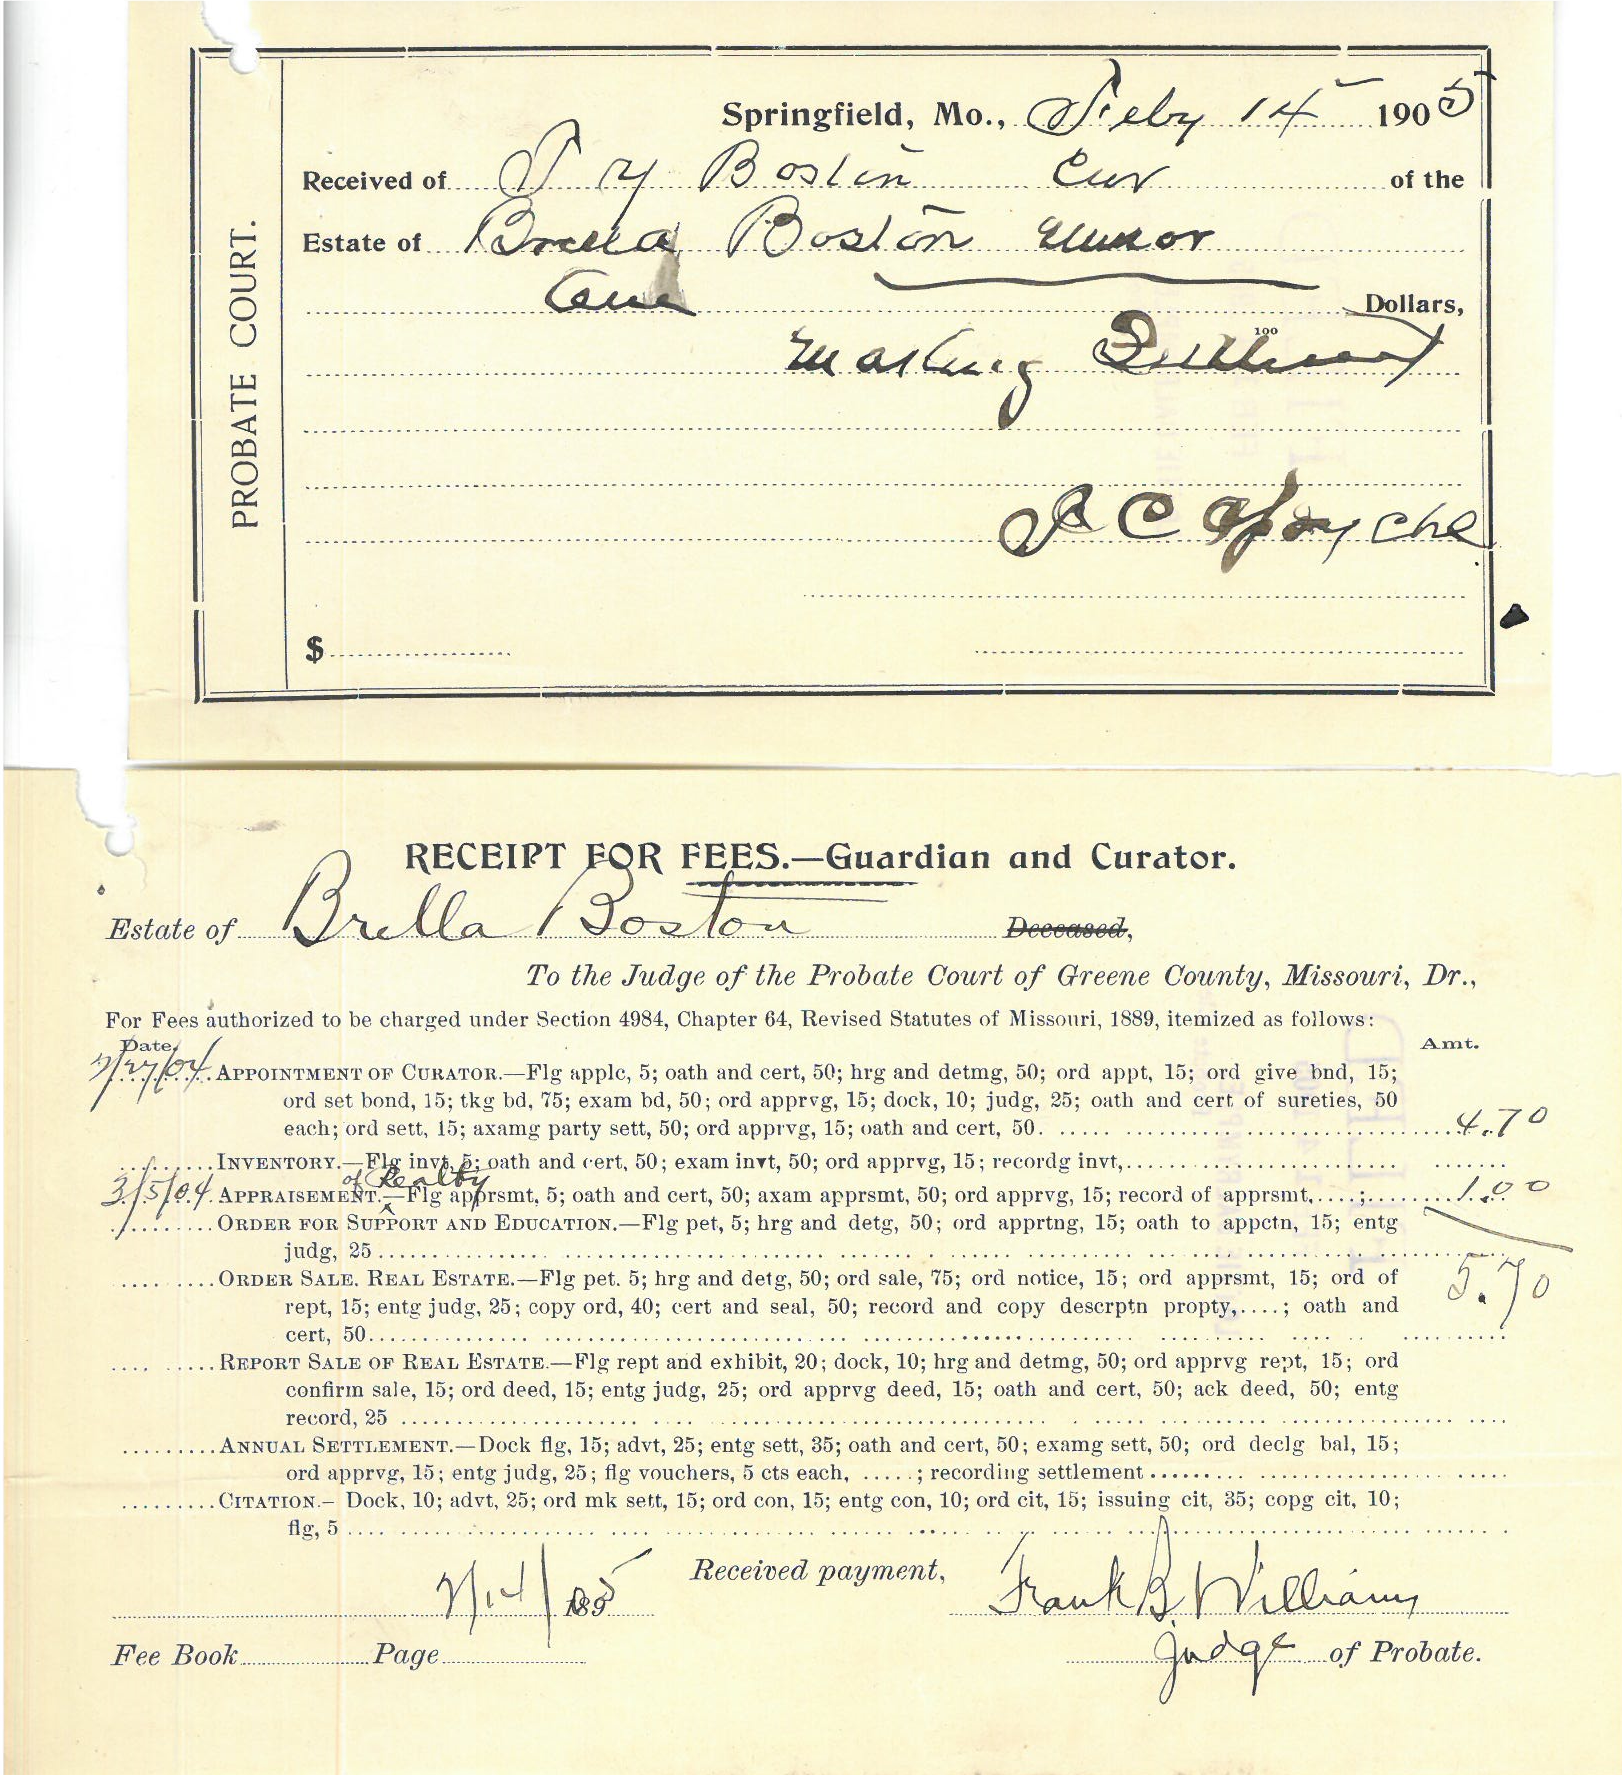 PROBATE COURT.
Springfield, Mo., Feby 14 1905
Received of T Y Boston Cur of the
Estate of Brella Boston Minor
One Dollars,
100
Making Settlement
$
RECEIPT FOR FEES.—Guardian and Curator.
Estate of Brella Boston Deceased,
To the Judge of the Probate Court of Greene County, Missouri, Dr.,
For Fees authorized to be charged under Section 4984, Chapter 64, Revised Statutes of Missouri, 1889, itemized as follows:
Date. Amt.
2/27/04 APPOINTMENT OF CURATOR.—Flg applc, 5; oath and cert, 50; hrg and detmg, 50; ord appt, 15; ord give bnd, 15;
ord set bond, 15; tkg bd, 75; exam bd, 50; ord apprvg, 15; dock, 10; judg, 25; oath and cert of sureties, 50
each; ord sett, 15; axamg party sett, 50; ord apprvg, 15; oath and cert, 50. 4.70
INVENTORY.—Flg invt, 5; oath and cert, 50; exam invt, 50; ord apprvg, 15; recordg invt,
of Realty
3/5/04 APPRAISEMENT.—Flg apprsmt, 5; oath and cert, 50; axam apprsmt, 50; ord apprvg, 15; record of apprsmt,....; 1.00
ORDER FOR SUPPORT AND EDUCATION.—Flg pet, 5; hrg and detg, 50; ord apprtng, 15; oath to appctn, 15; entg
judg, 25
5.70
ORDER SALE. REAL ESTATE.—Flg pet. 5; hrg and detg, 50; ord sale, 75; ord notice, 15; ord apprsmt, 15; ord of
rept, 15; entg judg, 25; copy ord, 40; cert and seal, 50; record and copy descrptn propty,....; oath and
cert, 50
REPORT SALE OF REAL ESTATE.—Flg rept and exhibit, 20; dock, 10; hrg and detmg, 50; ord apprvg rept, 15; ord
confirm sale, 15; ord deed, 15; entg judg, 25; ord apprvg deed, 15; oath and cert, 50; ack deed, 50; entg
record, 25
ANNUAL SETTLEMENT.—Dock flg, 15; advt, 25; entg sett, 35; oath and cert, 50; examg sett, 50; ord declg bal, 15;
ord apprvg, 15; entg judg, 25; flg vouchers, 5 cts each, .....; recording settlement
CITATION.– Dock, 10; advt, 25; ord mk sett, 15; ord con, 15; entg con, 10; ord cit, 15; issuing cit, 35; copg cit, 10;
flg, 5
2/14/05 Received payment, Frank B. Williams
Fee Book Page Judge of Probate.